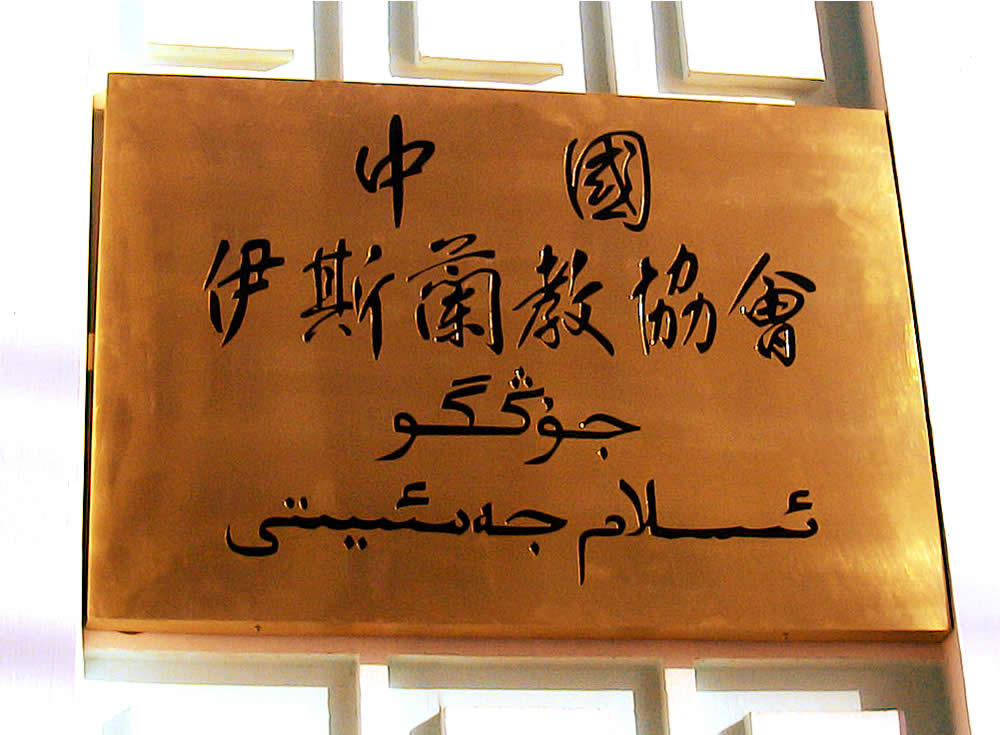 中國
伊斯蘭教協會
جۇڭگو
ئىسلام جەمئىيىتى